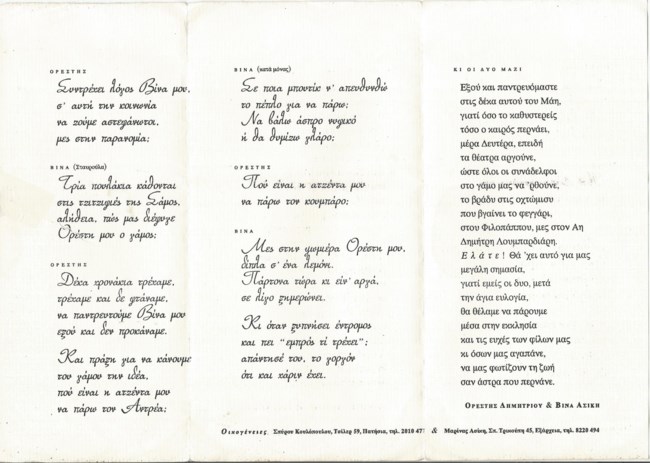 ΟΡΕΣΤΗΣ
Συντρέχει λόγος Βίνα μου,
σ' αυτή την κοινωνία
να ζούμε αστεφάνωτοι,
μες στην παρανομία;
ΒΙΝΑ (Σταυρούλα)
Τρία πουλάκια κάθονται
στις τζιτζιφιές της Σάμος,
αλήθεια, πώς μας διέφυγε
Ορέστη μου ο γάμος;
ΟΡΕΣΤΗΣ
Δέκα χρονάκια τρέχαμε,
τρέχαμε και δε φτάναμε,
να παντρευτούμε Βίνα μου
εξού και δεν προκάναμε.
Και πράξη για να κάνουμε
του γάμου την ιδέα,
πού είναι η ατζέντα μου
να πάρω τον Αντρέα;
ΒΙΝΑ (κατά μόνας)
Σε ποια μπουτίκ ν' απευθυνθώ
το πέπλο για να πάρω;
Να βάλω άσπρο νυφικό
ή θα θυμίζω γλάρο;
ΟΡΕΣΤΗΣ
Πού είναι η ατζέντα μου
να πάρω τον κουμπάρο;
ΒΙΝΑ
Μες στην φωμιέρα Ορέστη μου,
δίπλα σ' ένα λεμόνι.
Πάρτονα τώρα κι είν' αργά,
σε λίγο ξημερώνει.
Κι όταν ξυπνήσει έντρομος
και πει "εμπρός τί τρέχει";
απάντησέ του, το γοργόν
ότι και χάριν έχει.
ΚΙ ΟΙ ΔΥΟ ΜΑΖΙ
Εξού και παντρευόμαστε
στις δέκα αυτού του Μάη,
γιατί όσο το καθυστερείς
τόσο ο καιρός περνάει,
μέρα Δευτέρα, επειδή
τα θέατρα αργούνε,
ώστε όλοι οι συνάδελφοι
στο γάμο μας να 'ρθούνε,
το βράδυ στις οχτώμισυ
που βγαίνει το φεγγάρι,
στου Φιλοπάππου, μες στον Αη
Δημήτρη Λουμπαρδιάρη.
Ελάτε! Θά 'χει αυτό για μας
μεγάλη σημασία,
γιατί εμείς οι δυο, μετά
την άγια ευλογία,
θα θέλαμε να πάρουμε
μέσα στην εκκλησία
και τις ευχές των φίλων μας
κι όσων μας αγαπάνε,
να μας φωτίζουν τη ζωή
σαν άστρα που περνάνε.
ΟΡΕΣΤΗΣ ΔΗΜΗΤΡΙΟΥ & ΒΙΝΑ ΑΣΙΚΗ
Οικογένειες Σπύρου Κουλόπουλου, Τσίλερ 59, Πατήσια, τηλ. 2010 47 & Μαρίνας Ασίκη, Σπ. Τρικούπη 45, Εξάρχεια, τηλ. 8220 494